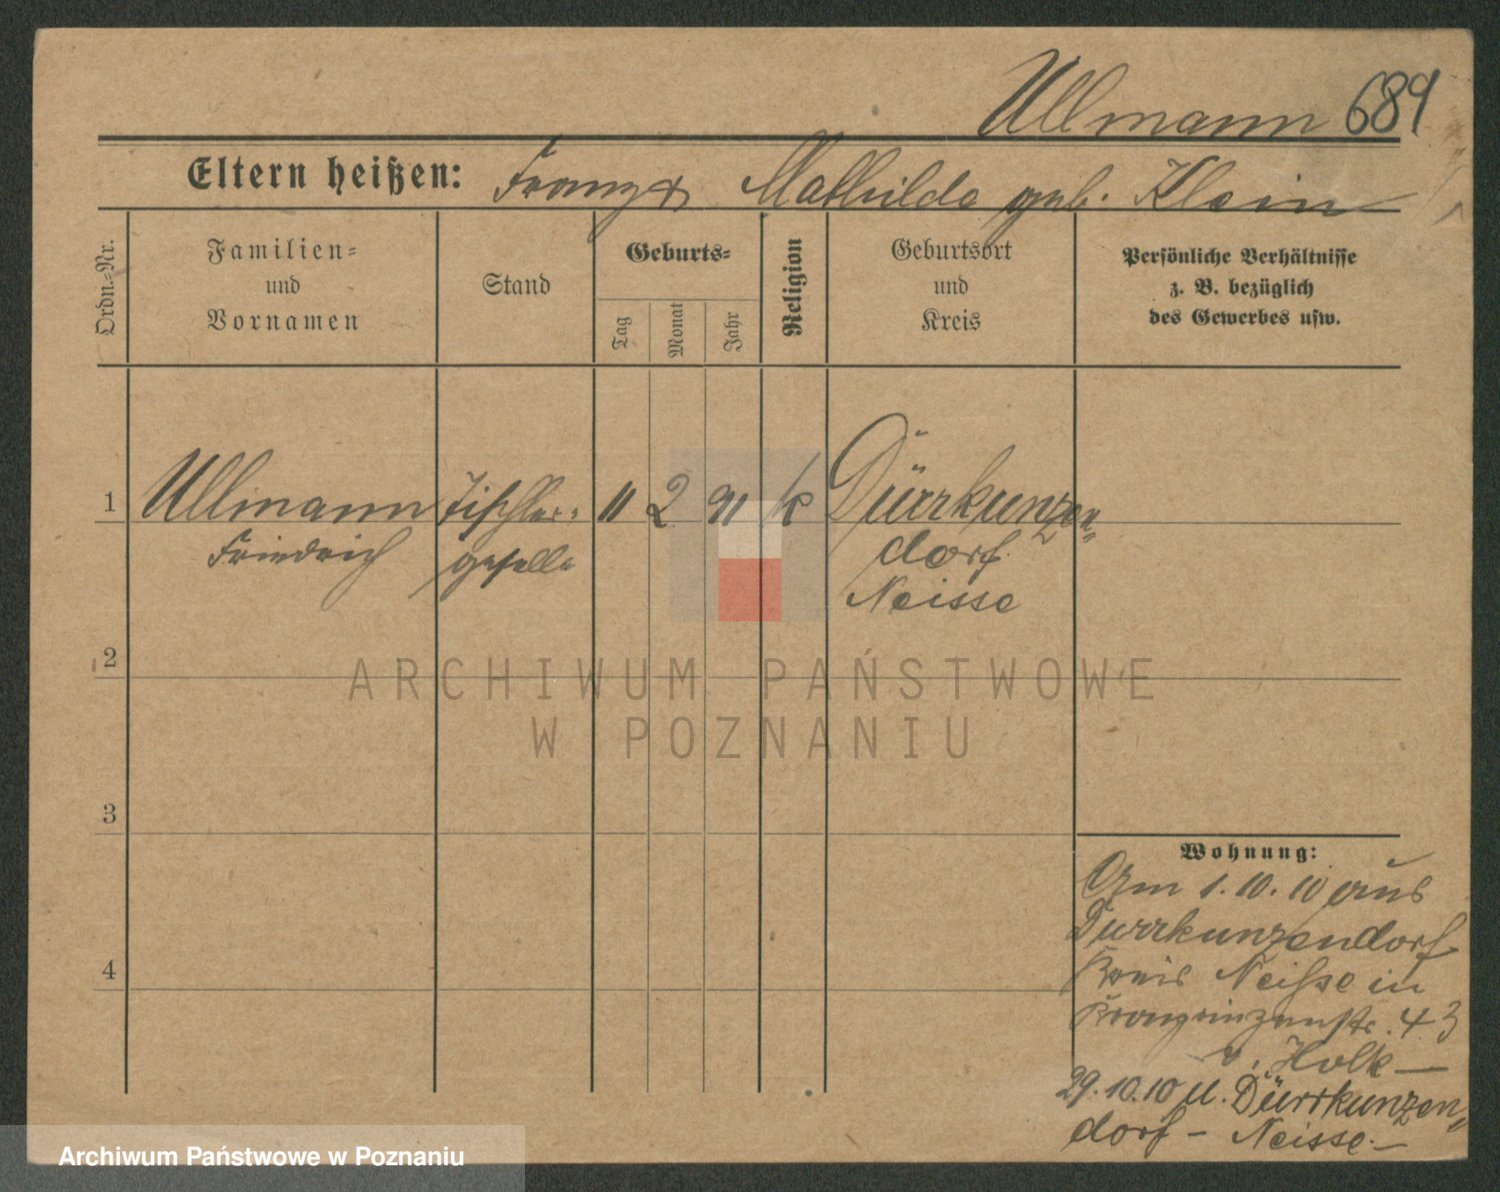 Ullmann 689
Eltern heißen: Franz u Mathilde geb. Klein
Ordn.-Nr.
Familien-
und
Vornamen
Stand
Geburts-
Tag
Monat
Jahr
Religion
Geburtsort
und
Kreis
Persönliche Verhältnisse
z. B. bezüglich
des Gewerbes usw.
1 Ullmann Tischler- 11 2 91 k Dürrkunzen-
Friedrich geselle dorf
Neisse
2
ARCHIWUM PAŃSTWOWE
W POZNANIU
3
4
Wohnung:
Am 1.10.10 aus
Durrkunzendorf
Kreis Neisse in
Kronprinzenstr. 43
b. Holk
29.10.10 u. Dürrkunzen-
dorf - Neisse.
Archiwum Państwowe w Poznaniu